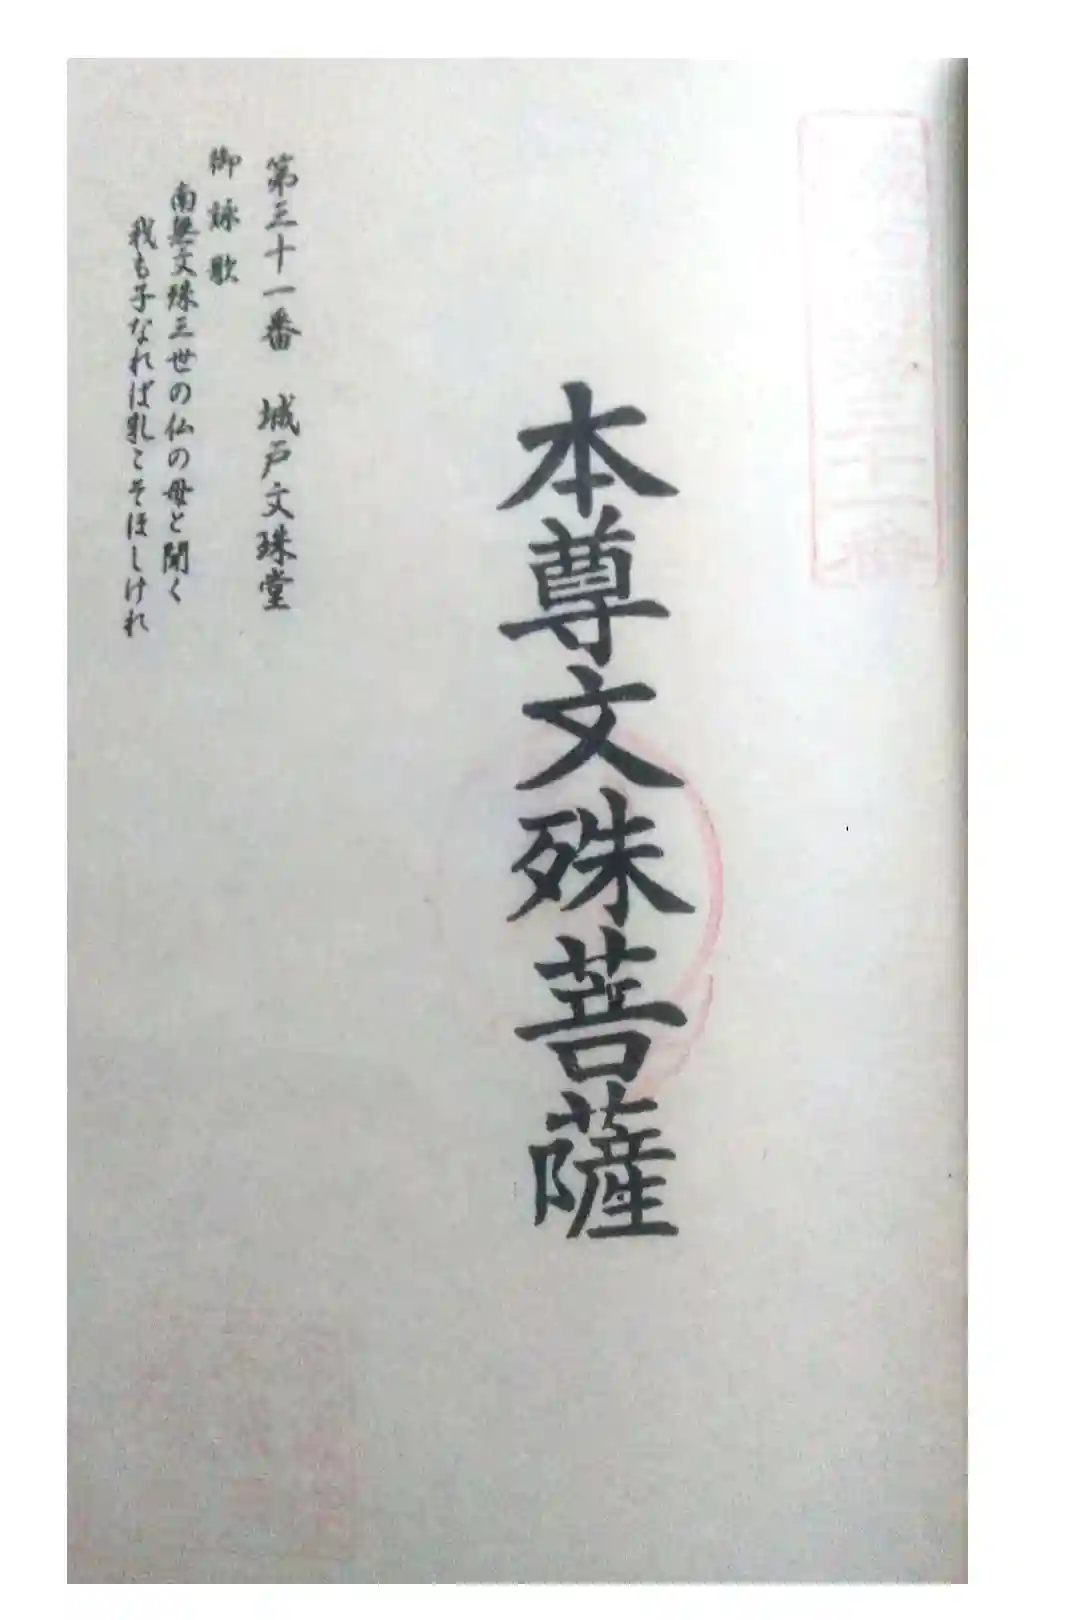 三十一番
本尊文殊菩薩
第三十一番 城戸文殊堂
御詠歌
南無文殊三世の仏の母と聞く
我も子なれば乳こそほしけれ